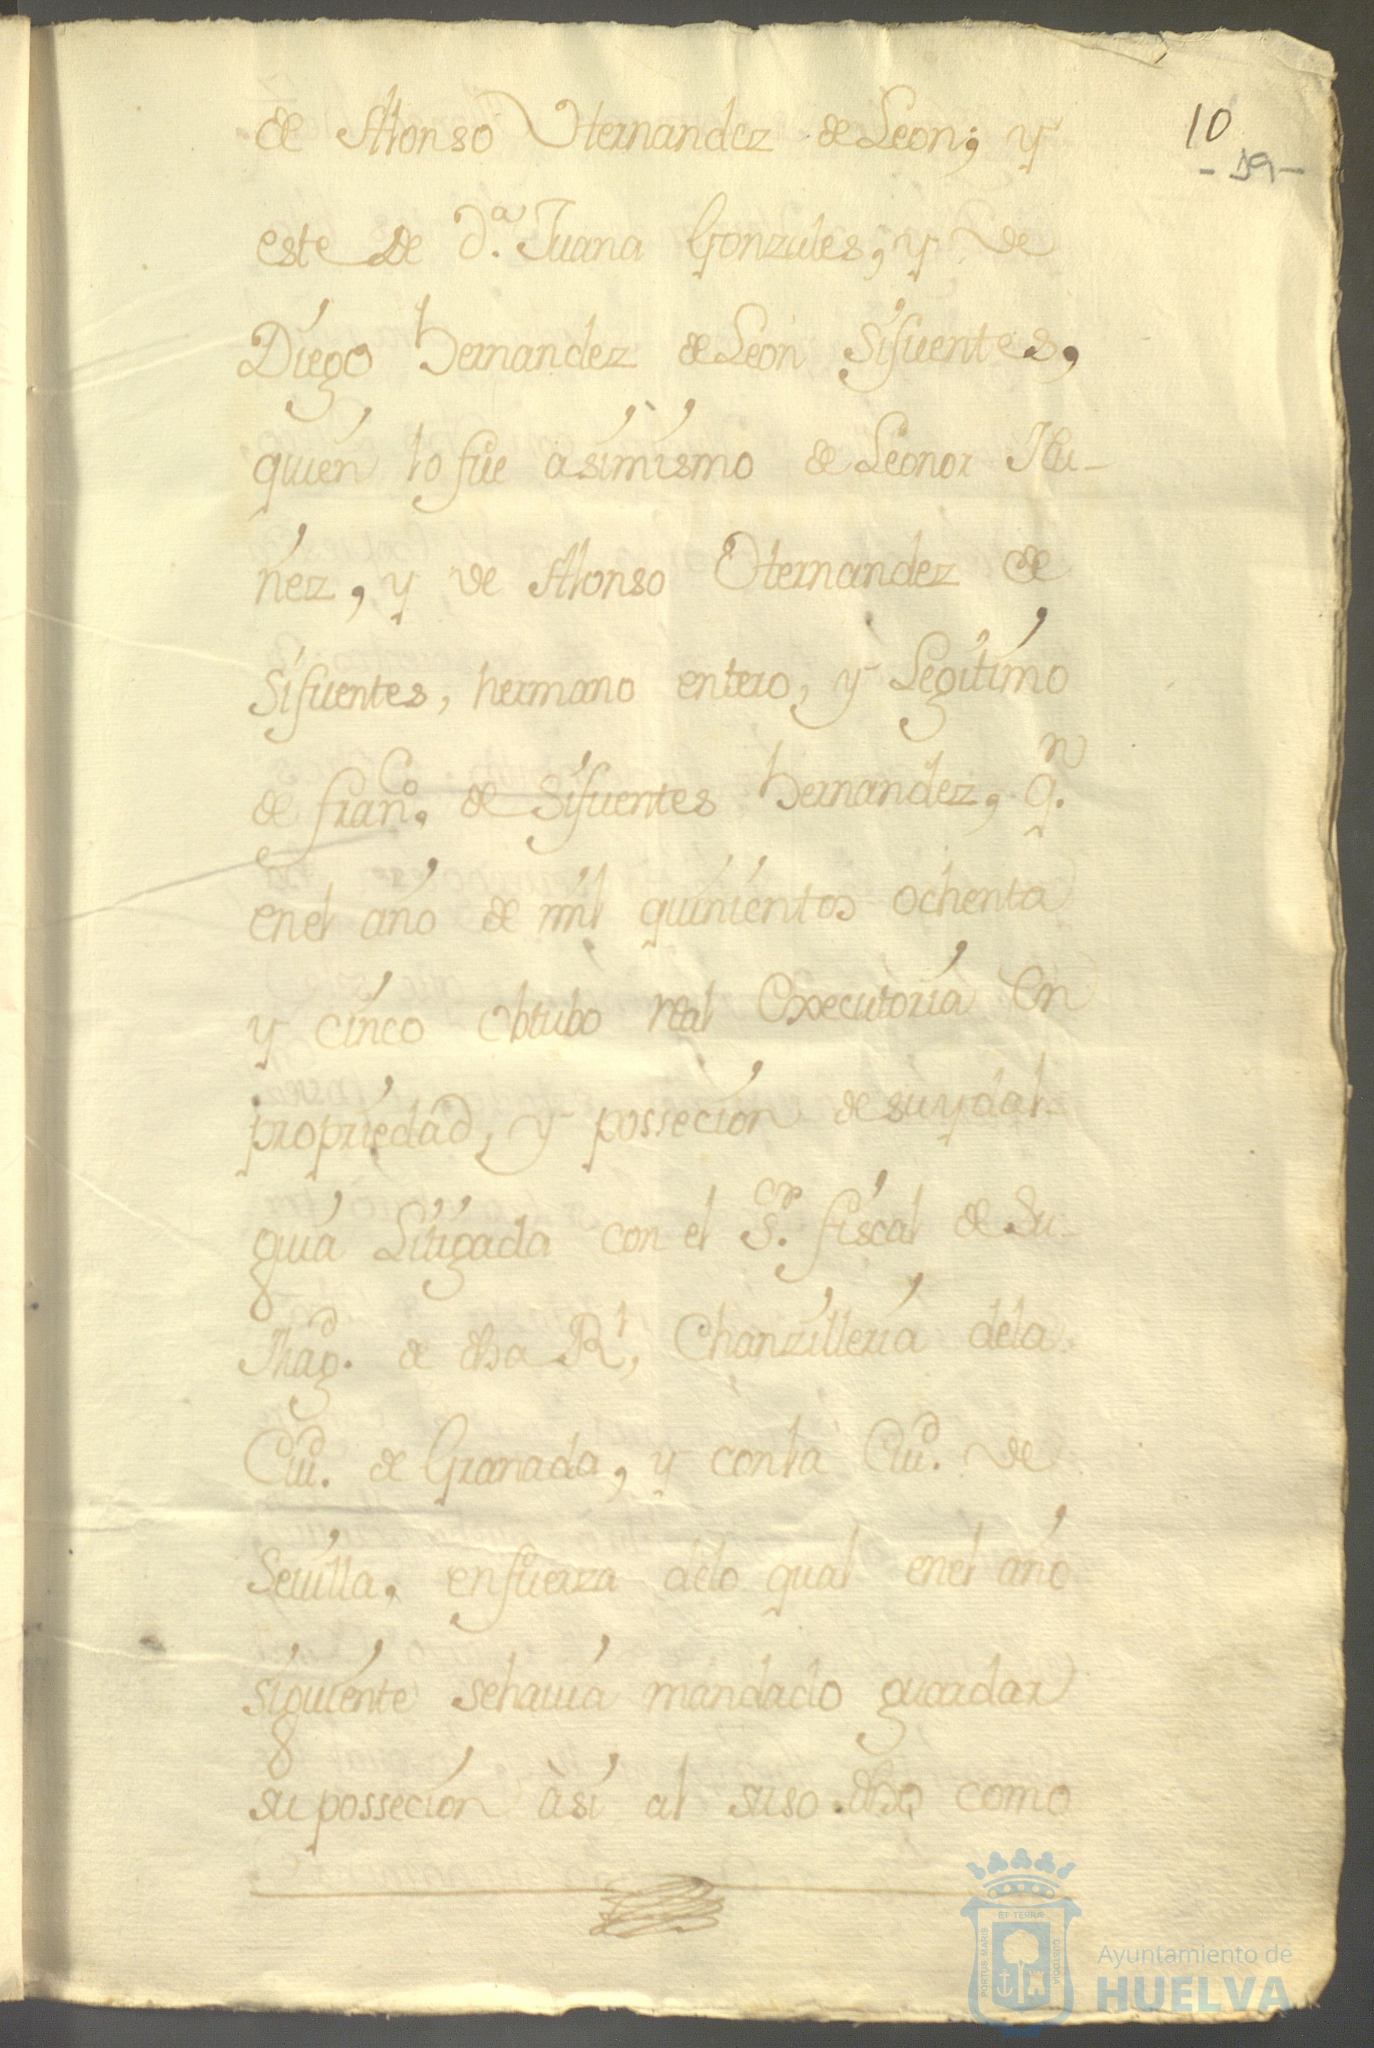 de Alonso Hernandez de Leon; y
10
- 19 -
este de d.ª Juana Gonzales; y de
Diego hernandez de Leon Sifuentes,
quien lo fue asimismo de Leonor Nu-
ñez, y de Alonso Hernandez de
Sifuentes, hermano entero, y Legitimo
de fran.co de Sifuentes hernandez, q.n
enel año de mil quinientos ochenta
y cinco obtubo real Executoria en
propriedad, y possecion de su ydal-
guia Litigada con el S.or fiscal de Su
Mag.d de dha R.l Chanzilleria dela
Ciu.d de Granada, y conla Ciu.d de
Sevilla, enfuerza delo qual enel año
siguiente sehavia mandado guardar
su possecion àsi al suso dho como
PORTUS MARIS
ET TERRÆ
CUSTODIA
Ayuntamiento de
HUELVA